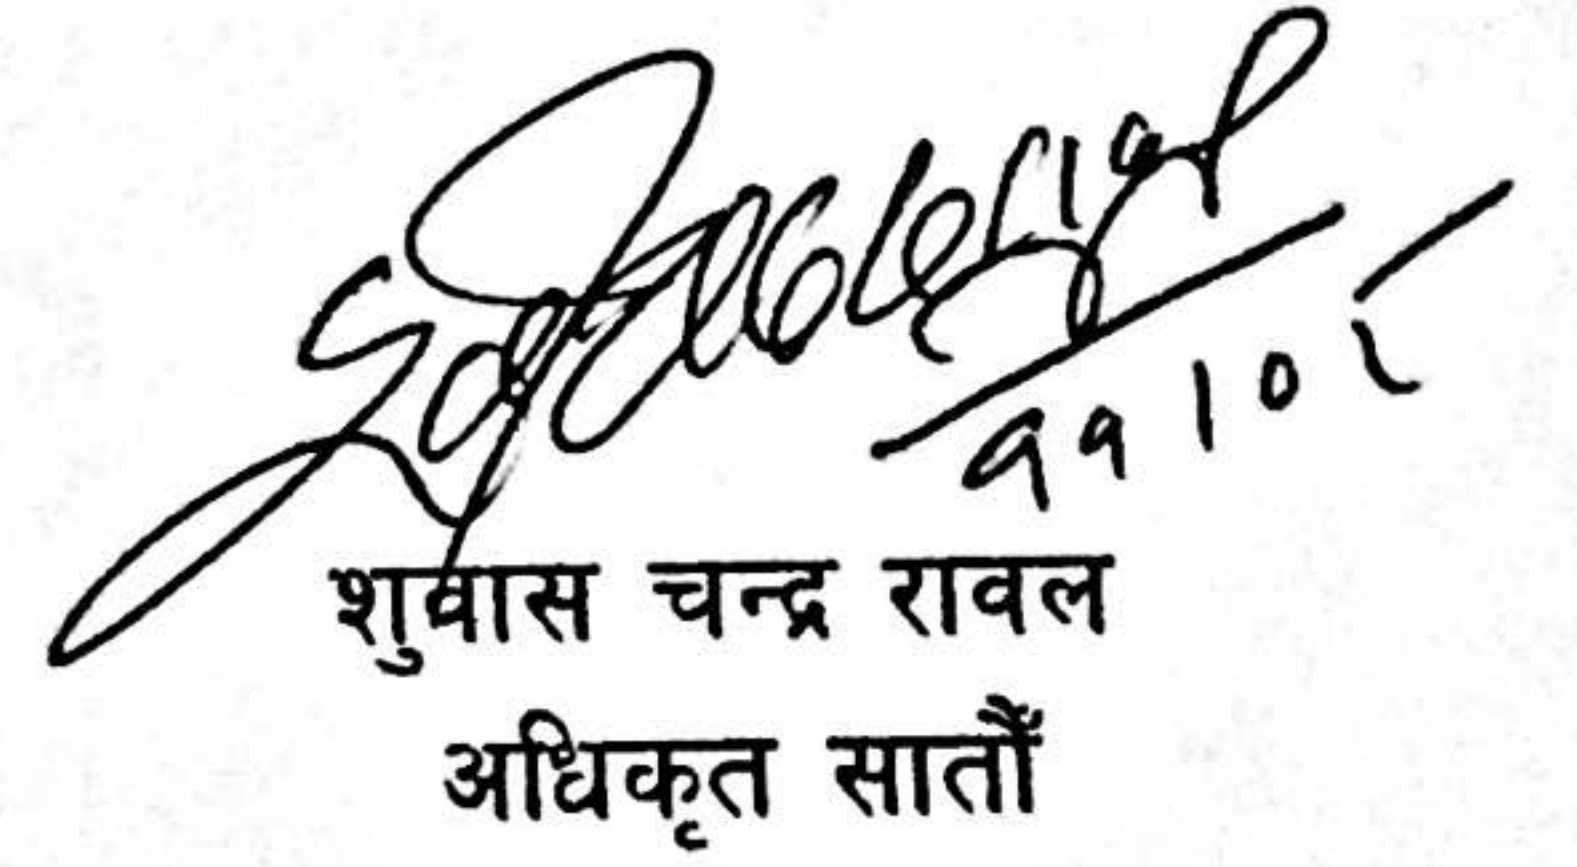 ११।०८
शुवास चन्द्र रावल
अधिकृत सातौँ